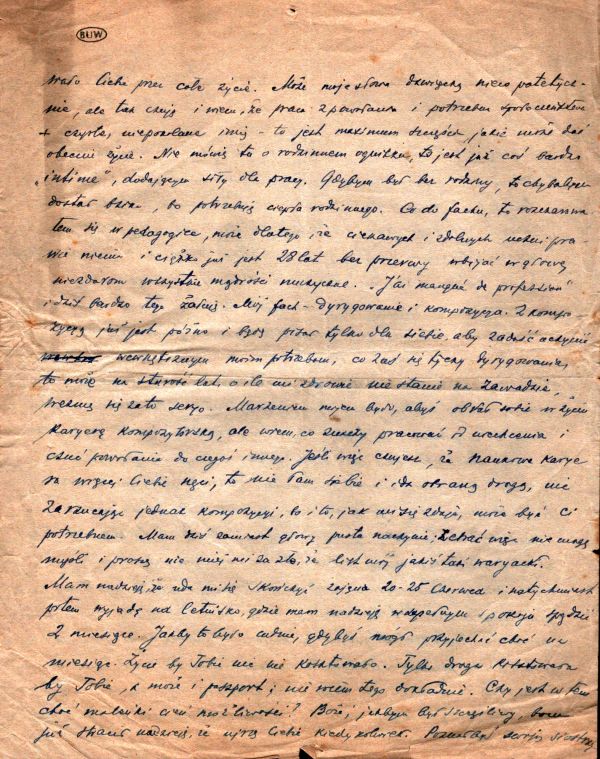 BUW
Ciebie przez całe życie. Może moje słowa dźwięczą nieco patetycz-
nie, ale tak czuję i wiem, że praca z powołania i potrzebna społeczeństwu
+ czysta, niepokalana - to jest maximum szczęścia jakie może dać
obecnie życie. Nie mówię tu o rodzinnem ognisku, to jest już coś bardzo
„intime", dodającym siły dla pracy. Gdybym był bez rodziny, to chybabym
dostał, bo potrzebuję ciepła rodzinnego. Co do fachu, to rozczarowa
łem się w pedagogice, może dlatego, że ciekawych i zdolnych uczni pra-
wie niema i ciężko już jest 28 lat bez przerwy wbijać w głowy
niezdarom wszystkie mądrości muzyczne. „J'ai manqué de profession"
i dziś bardzo tego żałuję. Mój fach - dyrygowanie i kompozycja. Z kompo-
zycją już jest późno i będę pisać tylko dla siebie, aby zadość uczynić
wewnętrznym moim potrzebom, co zaś się tyczy dyrygowania,
to może na starość lat, o ile mi zdrowie nie stanie na zawadzie,
wezmę się za to serjo. Marzeniem mojem było, abyś obrał sobie w życiu
karyerę kompozytorską, ale wiem, co znaczy pracować bez natchnienia i
czuć powołanie do czegoś innego. Jeśli więc czujesz, że naukowa karye
ra więcej Ciebie nęci, to nie łam siebie i idź obraną drogą, nie
zarzucając jednak kompozycji, bo i to, jak mi się zdaje, może być Ci
potrzebnem. Mam dziś zamiast głowy puste naczynie, zebrać więc nie mogę
myśli i proszę nie miej mi za złe, że list mój jakiś taki waryacki.
Mam nadzieję, że uda mi się skończyć zajęcia 20-25 czerwca i natychmiast
potem wyjadę na letnisko, gdzie mam nadzieję w zupełnym spokoju spędzić
2 miesiące. Jakby to było cudnie, gdybyś mógł przyjechać choć na
miesiąc. Życie by Tobie nic nie kosztowało. Tylko droga kosztowała
by Tobie, a może i paszport; nie wiem tego dokładnie. Czy jest w tem
choć maleńki cień możliwości? Boże, jakbym był szczęśliwy, bom
już stracił nadzieję, że ujrzę Ciebie kiedykolwiek. Poznałbyś swoją siostrę